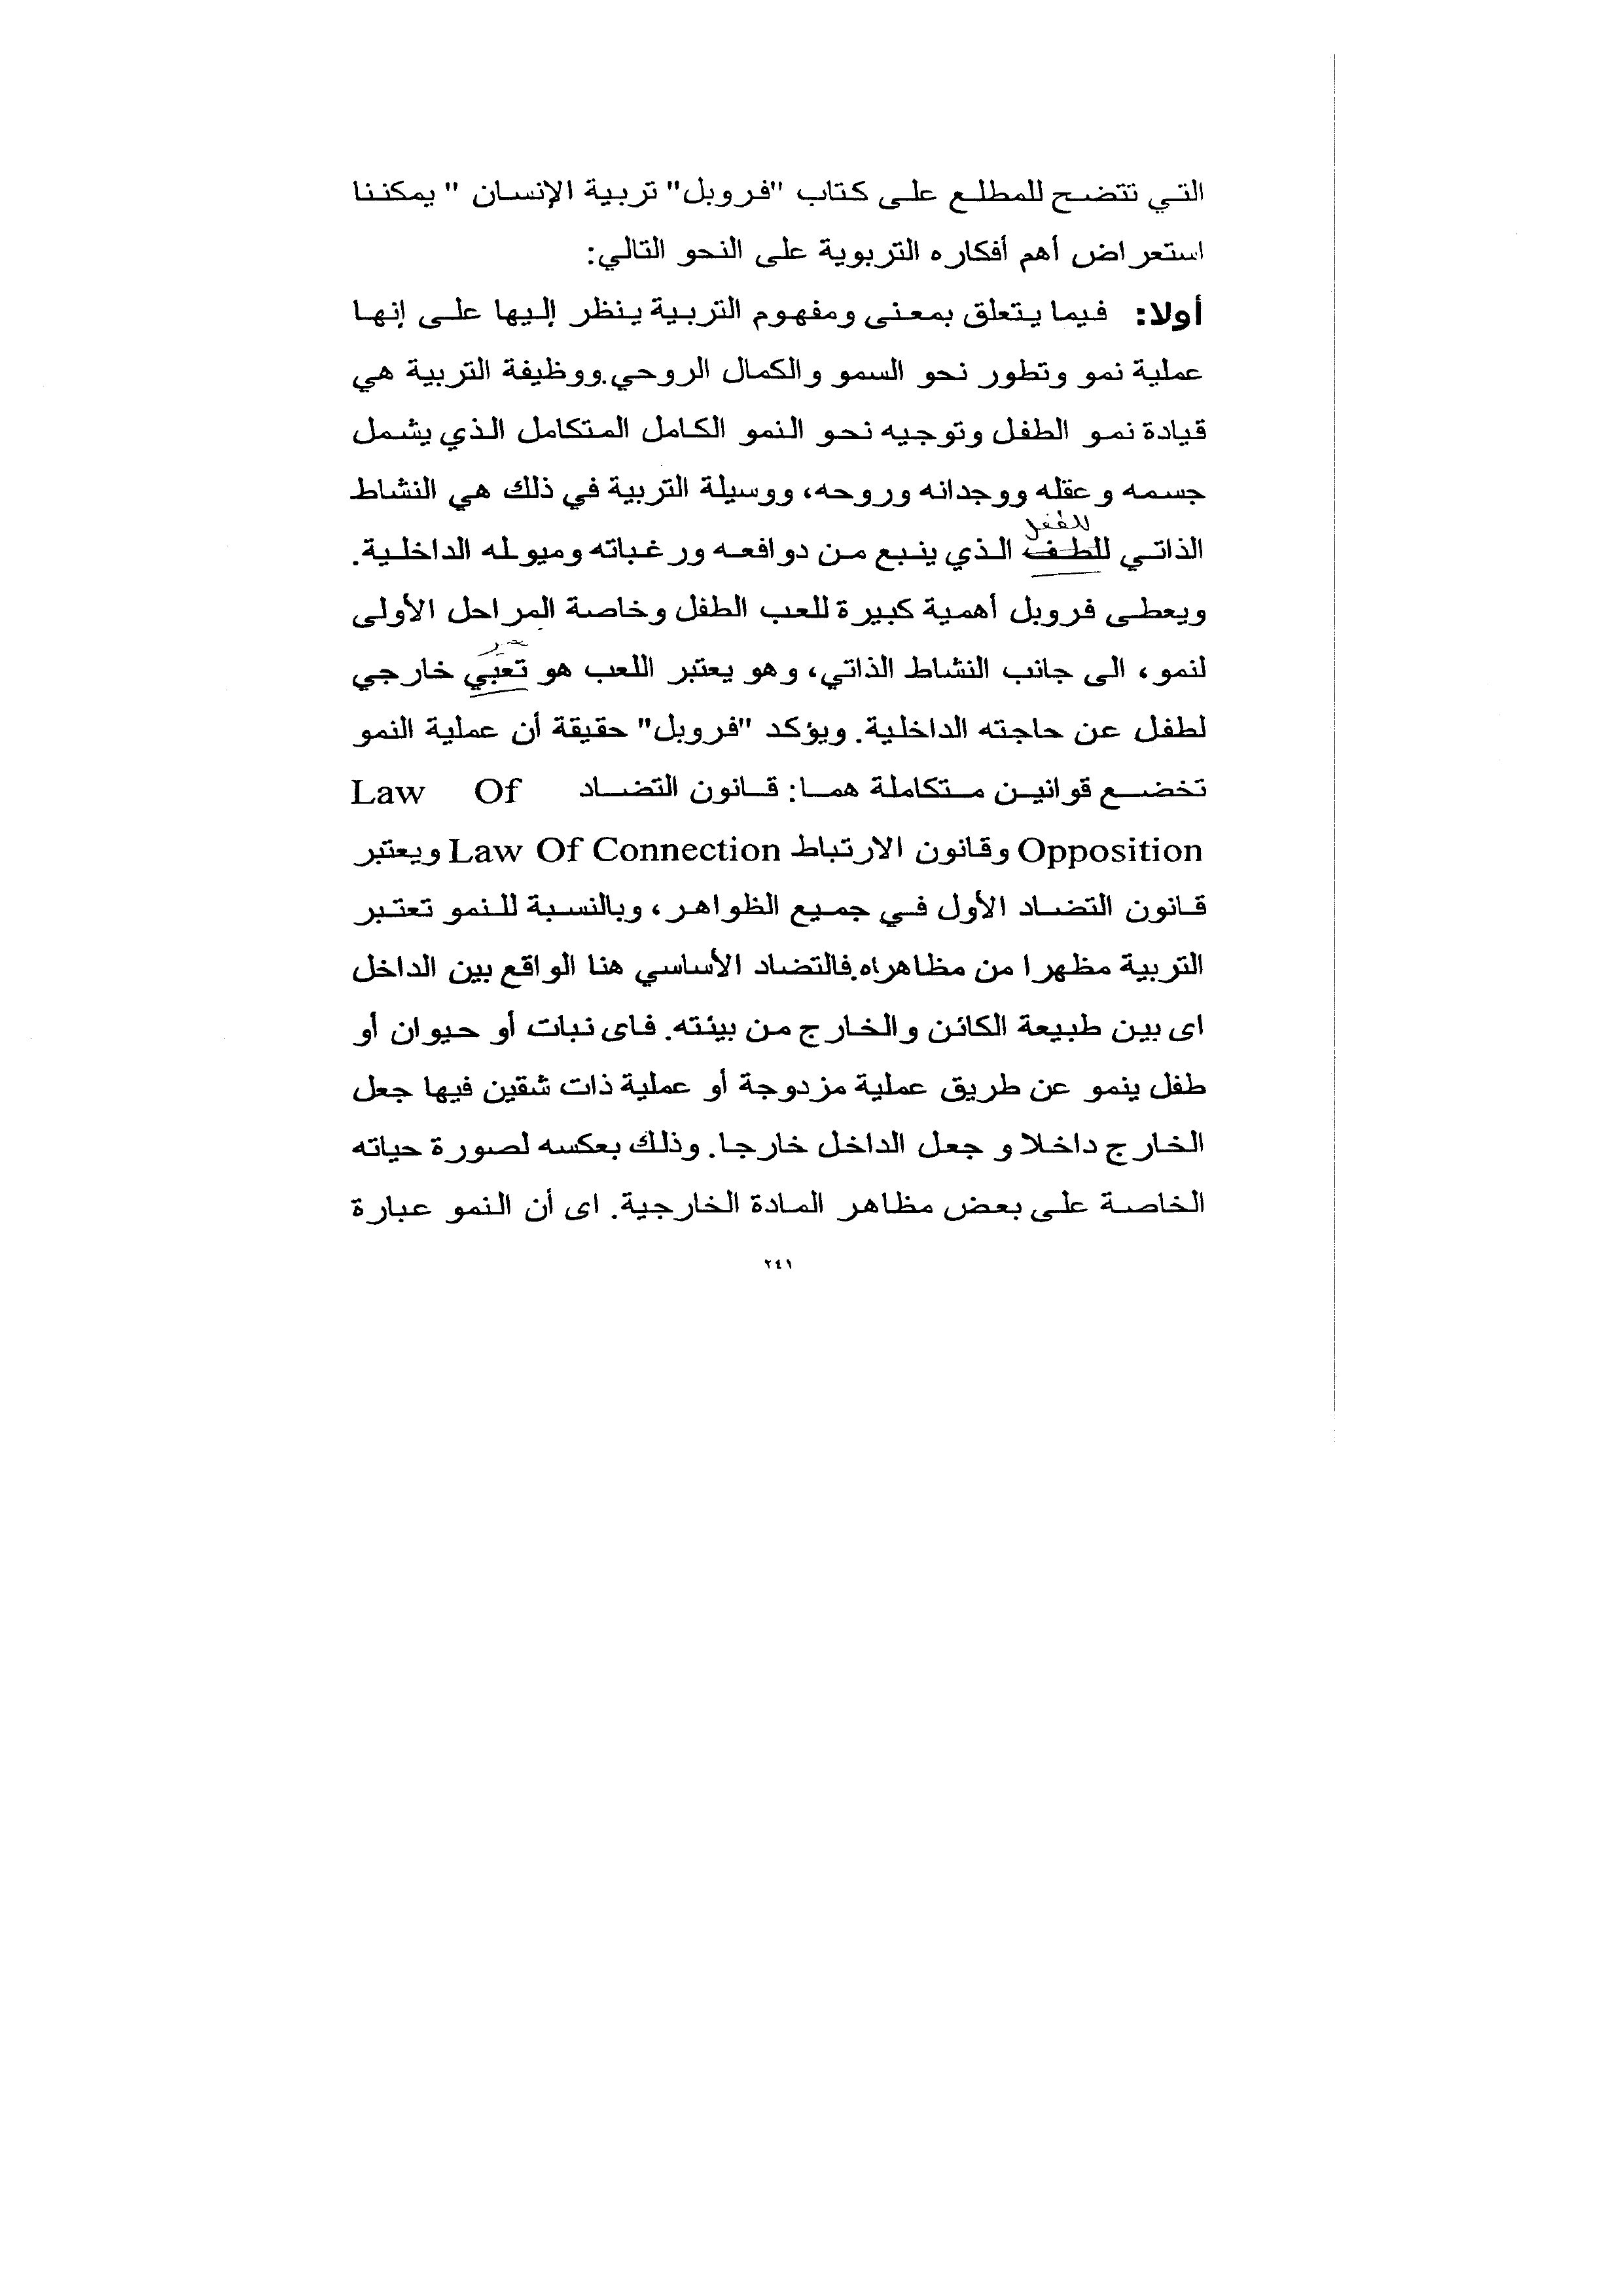 التي تتضح للمطلع على كتاب "فروبل" تربية الإنسان " يمكننا
استعراض أهم أفكاره التربوية على النحو التالي:
أولا: فيما يتعلق بمعنى ومفهوم التربية ينظر إليها على إنها
عملية نمو وتطور نحو السمو والكمال الروحي.ووظيفة التربية هي
قيادة نمو الطفل وتوجيه نحو النمو الكامل المتكامل الذي يشمل
جسمه وعقله ووجدانه وروحه، ووسيلة التربية في ذلك هي النشاط
للطفل
الذاتي للطف الذي ينبع من دوافعه ورغباته وميوله الداخلية.
ويعطى فروبل أهمية كبيرة للعب الطفل وخاصة المراحل الأولى
لنمو، الى جانب النشاط الذاتي، وهو يعتبر اللعب هو تعبي خارجي
لطفل عن حاجته الداخلية. ويؤكد "فروبل" حقيقة أن عملية النمو
تخضع قوانين متكاملة هما: قانون التضاد Law Of
Opposition وقانون الارتباط Law Of Connection ويعتبر
قانون التضاد الأول في جميع الظواهر، وبالنسبة للنمو تعتبر
التربية مظهرا من مظاهراه.فالتضاد الأساسي هنا الواقع بين الداخل
اى بين طبيعة الكائن والخارج من بيئته. فاى نبات أو حيوان أو
طفل ينمو عن طريق عملية مزدوجة أو عملية ذات شقين فيها جعل
الخارج داخلا و جعل الداخل خارجا. وذلك بعكسه لصورة حياته
الخاصة على بعض مظاهر المادة الخارجية. اى أن النمو عبارة
٢٤١